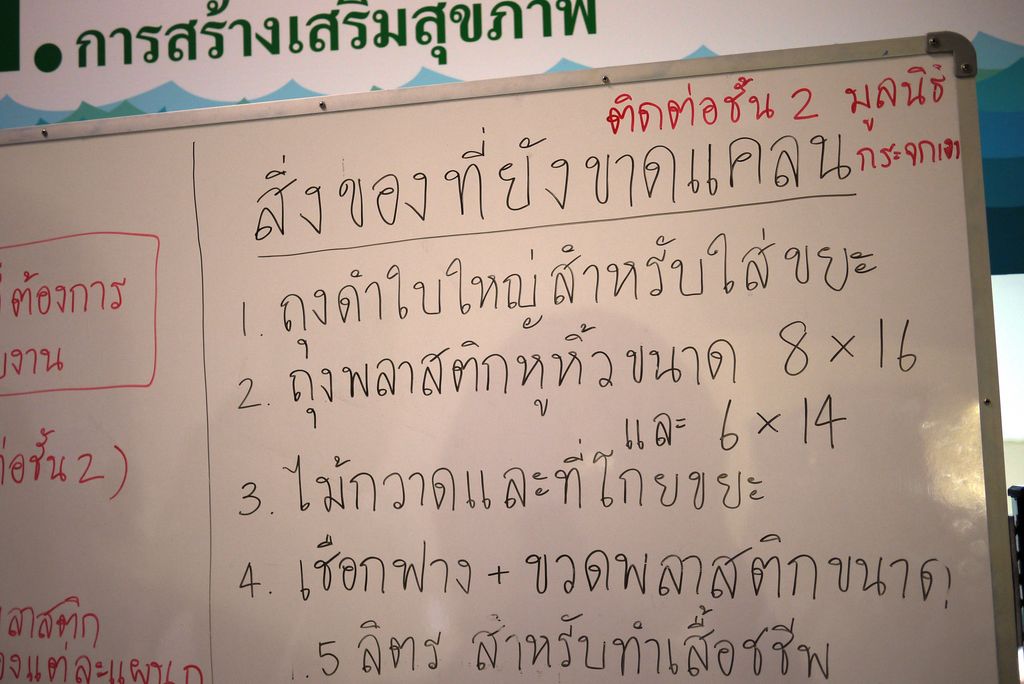 การสร้างเสริมสุขภาพ
ติดต่อชั้น 2 มูลนิธิ
กระจกเงา
สิ่งของที่ยังขาดแคลน
1. ถุงดำใบใหญ่สำหรับใส่ขยะ
2. ถุงพลาสติกหูหิ้วขนาด 8 × 16
และ 6 × 14
3. ไม้กวาดและที่โกยขยะ
4. เชือกฟาง + ขวดพลาสติกขนาด
1.5 ลิตร สำหรับทำเสื้อชูชีพ
ต้องการ
งาน
ต่อชั้น 2)
ลาสติก
องแต่ละแผนก